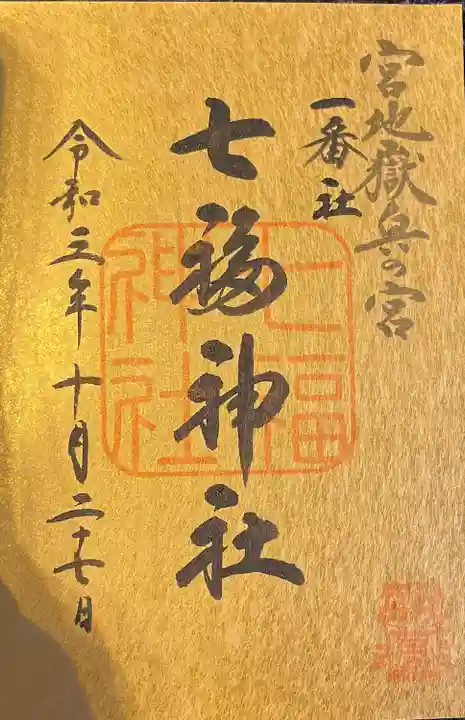 宮地嶽奥の宮
一番社
七福神社
七福
神社
令和三年十月二十七日